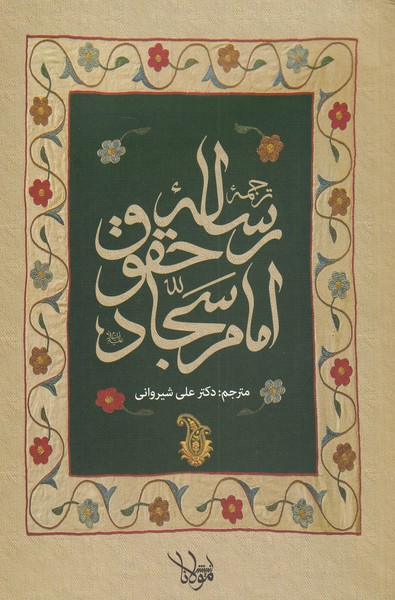 ترجمهٔ
رسالهٔ
حقوق
امام سجّاد
علیه‌السلام
مترجم: دکتر علی شیروانی
مولانا